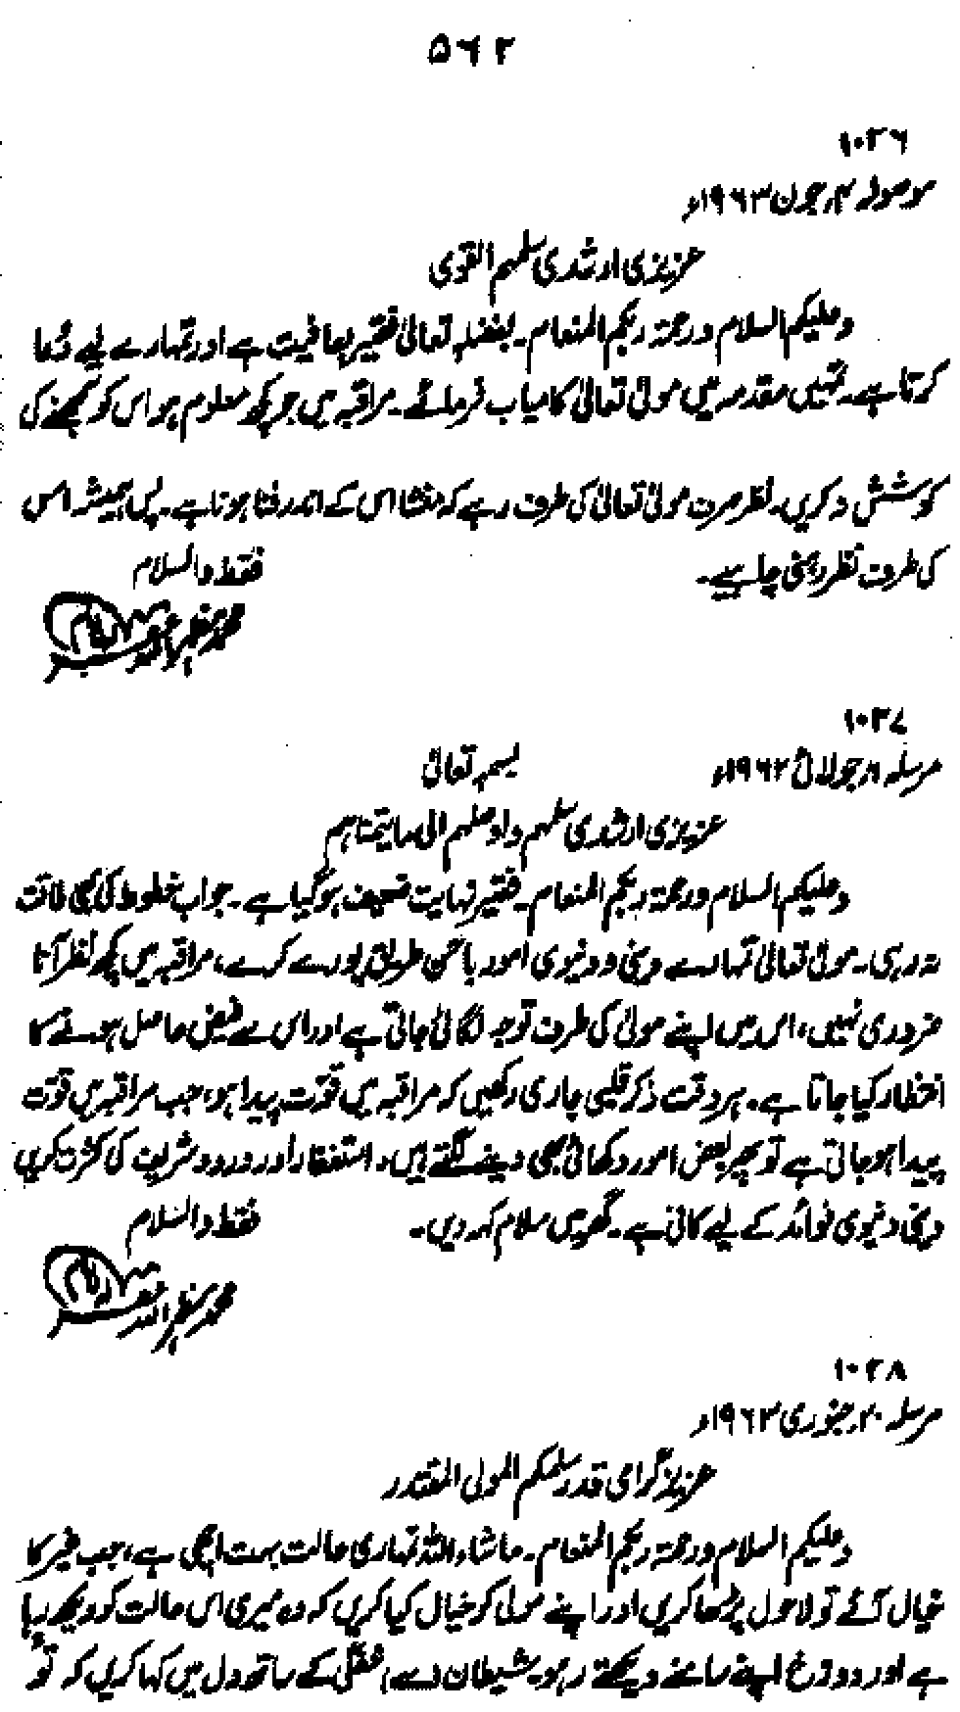 ۵۶۲
۱۰۳۶
موصولہ ۴؍جون ۱۹۶۳ء
عزیزی ارشدی سلمہم القوی
وعلیکم السلام ورحمۃ ربکم المنعام۔ بفضلہ تعالیٰ فقیر بعافیت ہے اور تمہارے لیے دُعا
کرتا ہے۔ تمہیں مقدمہ میں مولیٰ تعالیٰ کامیاب فرمائے۔ مراقبہ میں جو کچھ معلوم ہو اس کو سمجھنے کی
کوشش نہ کریں۔ نظر صرف مولیٰ تعالیٰ کی طرف رہے کہ منشا اس کے اندر فنا ہونا ہے۔ پس ہمیشہ اس
کی طرف نظر رہنی چاہیے۔ فقط والسلام
محمد مظہر اللہ
۱۰۳۷
مرسلہ ۸؍جولائی ۱۹۶۲ء بسمہ تعالیٰ
عزیزی ارشدی سلمہم واوصلہم الی مایتمناہم
وعلیکم السلام ورحمۃ ربکم المنعام۔ فقیر نہایت ضعیف ہو گیا ہے۔ جواب خطوط کی بھی طاقت
نہ رہی۔ مولیٰ تعالیٰ تمہارے دینی و دنیوی امور باحسن طریق پورے کرے، مراقبہ میں کچھ نظر آنا
ضروری نہیں، اس میں اپنے مولیٰ کی طرف توجہ لگائی جاتی ہے اور اس سے فیض حاصل ہونے کا
انتظار کیا جاتا ہے۔ ہر وقت ذکر قلبی جاری رکھیں کہ مراقبہ میں قوّت پیدا ہو، جب مراقبہ میں قوّت
پیدا ہو جاتی ہے تو پھر بعض امور دکھائی بھی دینے لگتے ہیں۔ استغفار اور درود شریف کی کثرت کریں
دینی دنیوی فوائد کے لیے کافی ہے۔ گھر میں سلام کہہ دیں۔ فقط والسلام
محمد مظہر اللہ
۱۰۳۸
مرسلہ ۲۰؍جنوری ۱۹۶۳ء
عزیز گرامی قدر سلمکم المولی المقتدر
وعلیکم السلام ورحمۃ ربکم المنعام۔ ماشاء اللہ تمہاری حالت بہت اچھی ہے، جب غیر کا
خیال آئے تو لاحول پڑھا کریں اور اپنے مولیٰ کو خیال کیا کریں کہ وہ میری اس حالت کو دیکھ رہا
ہے اور دوزخ اپنے سامنے دیکھتے رہو۔ شیطان سے، خفگی کے ساتھ دل میں کہا کریں کہ تُو